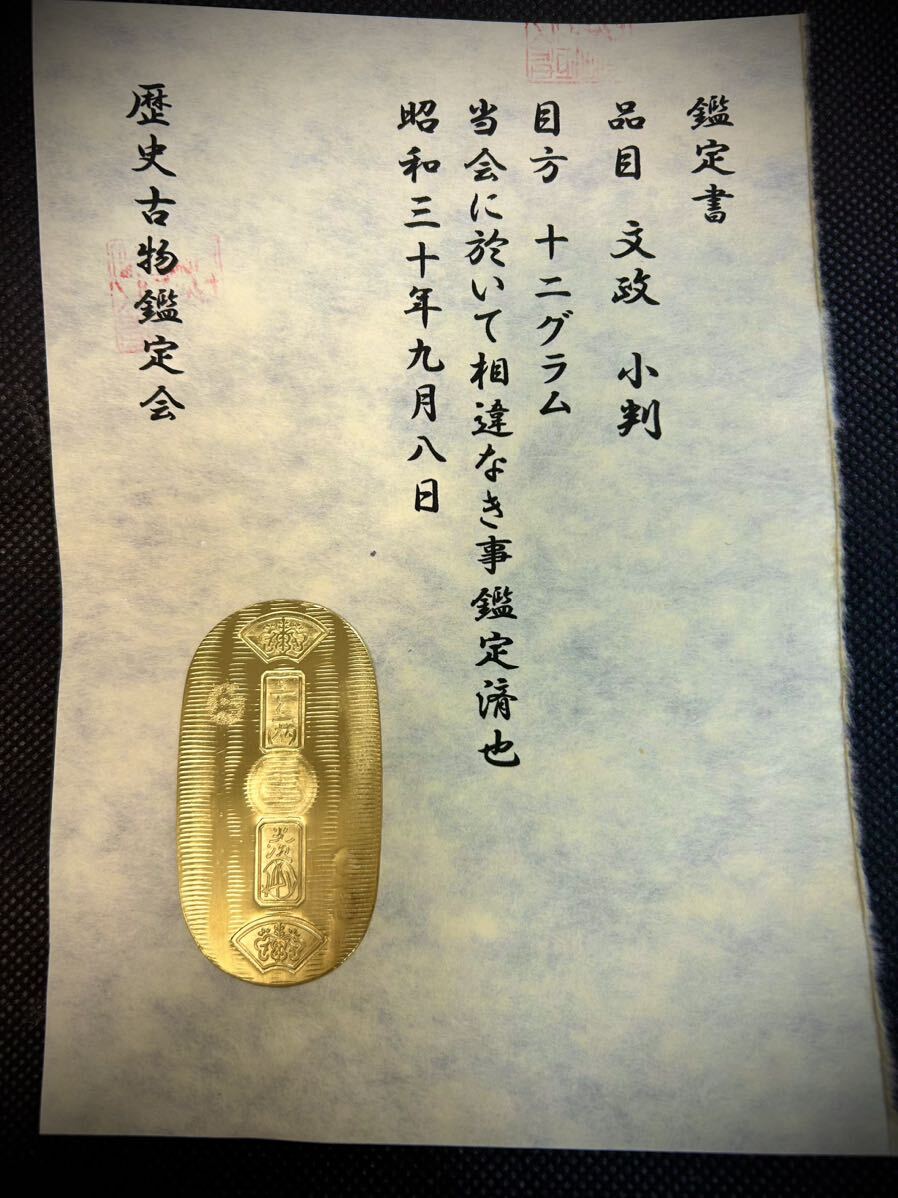 鑑定書
品目 文政 小判
目方 十二グラム
当会に於いて相違なき事鑑定済也
昭和三十年九月八日
歴史古物鑑定会